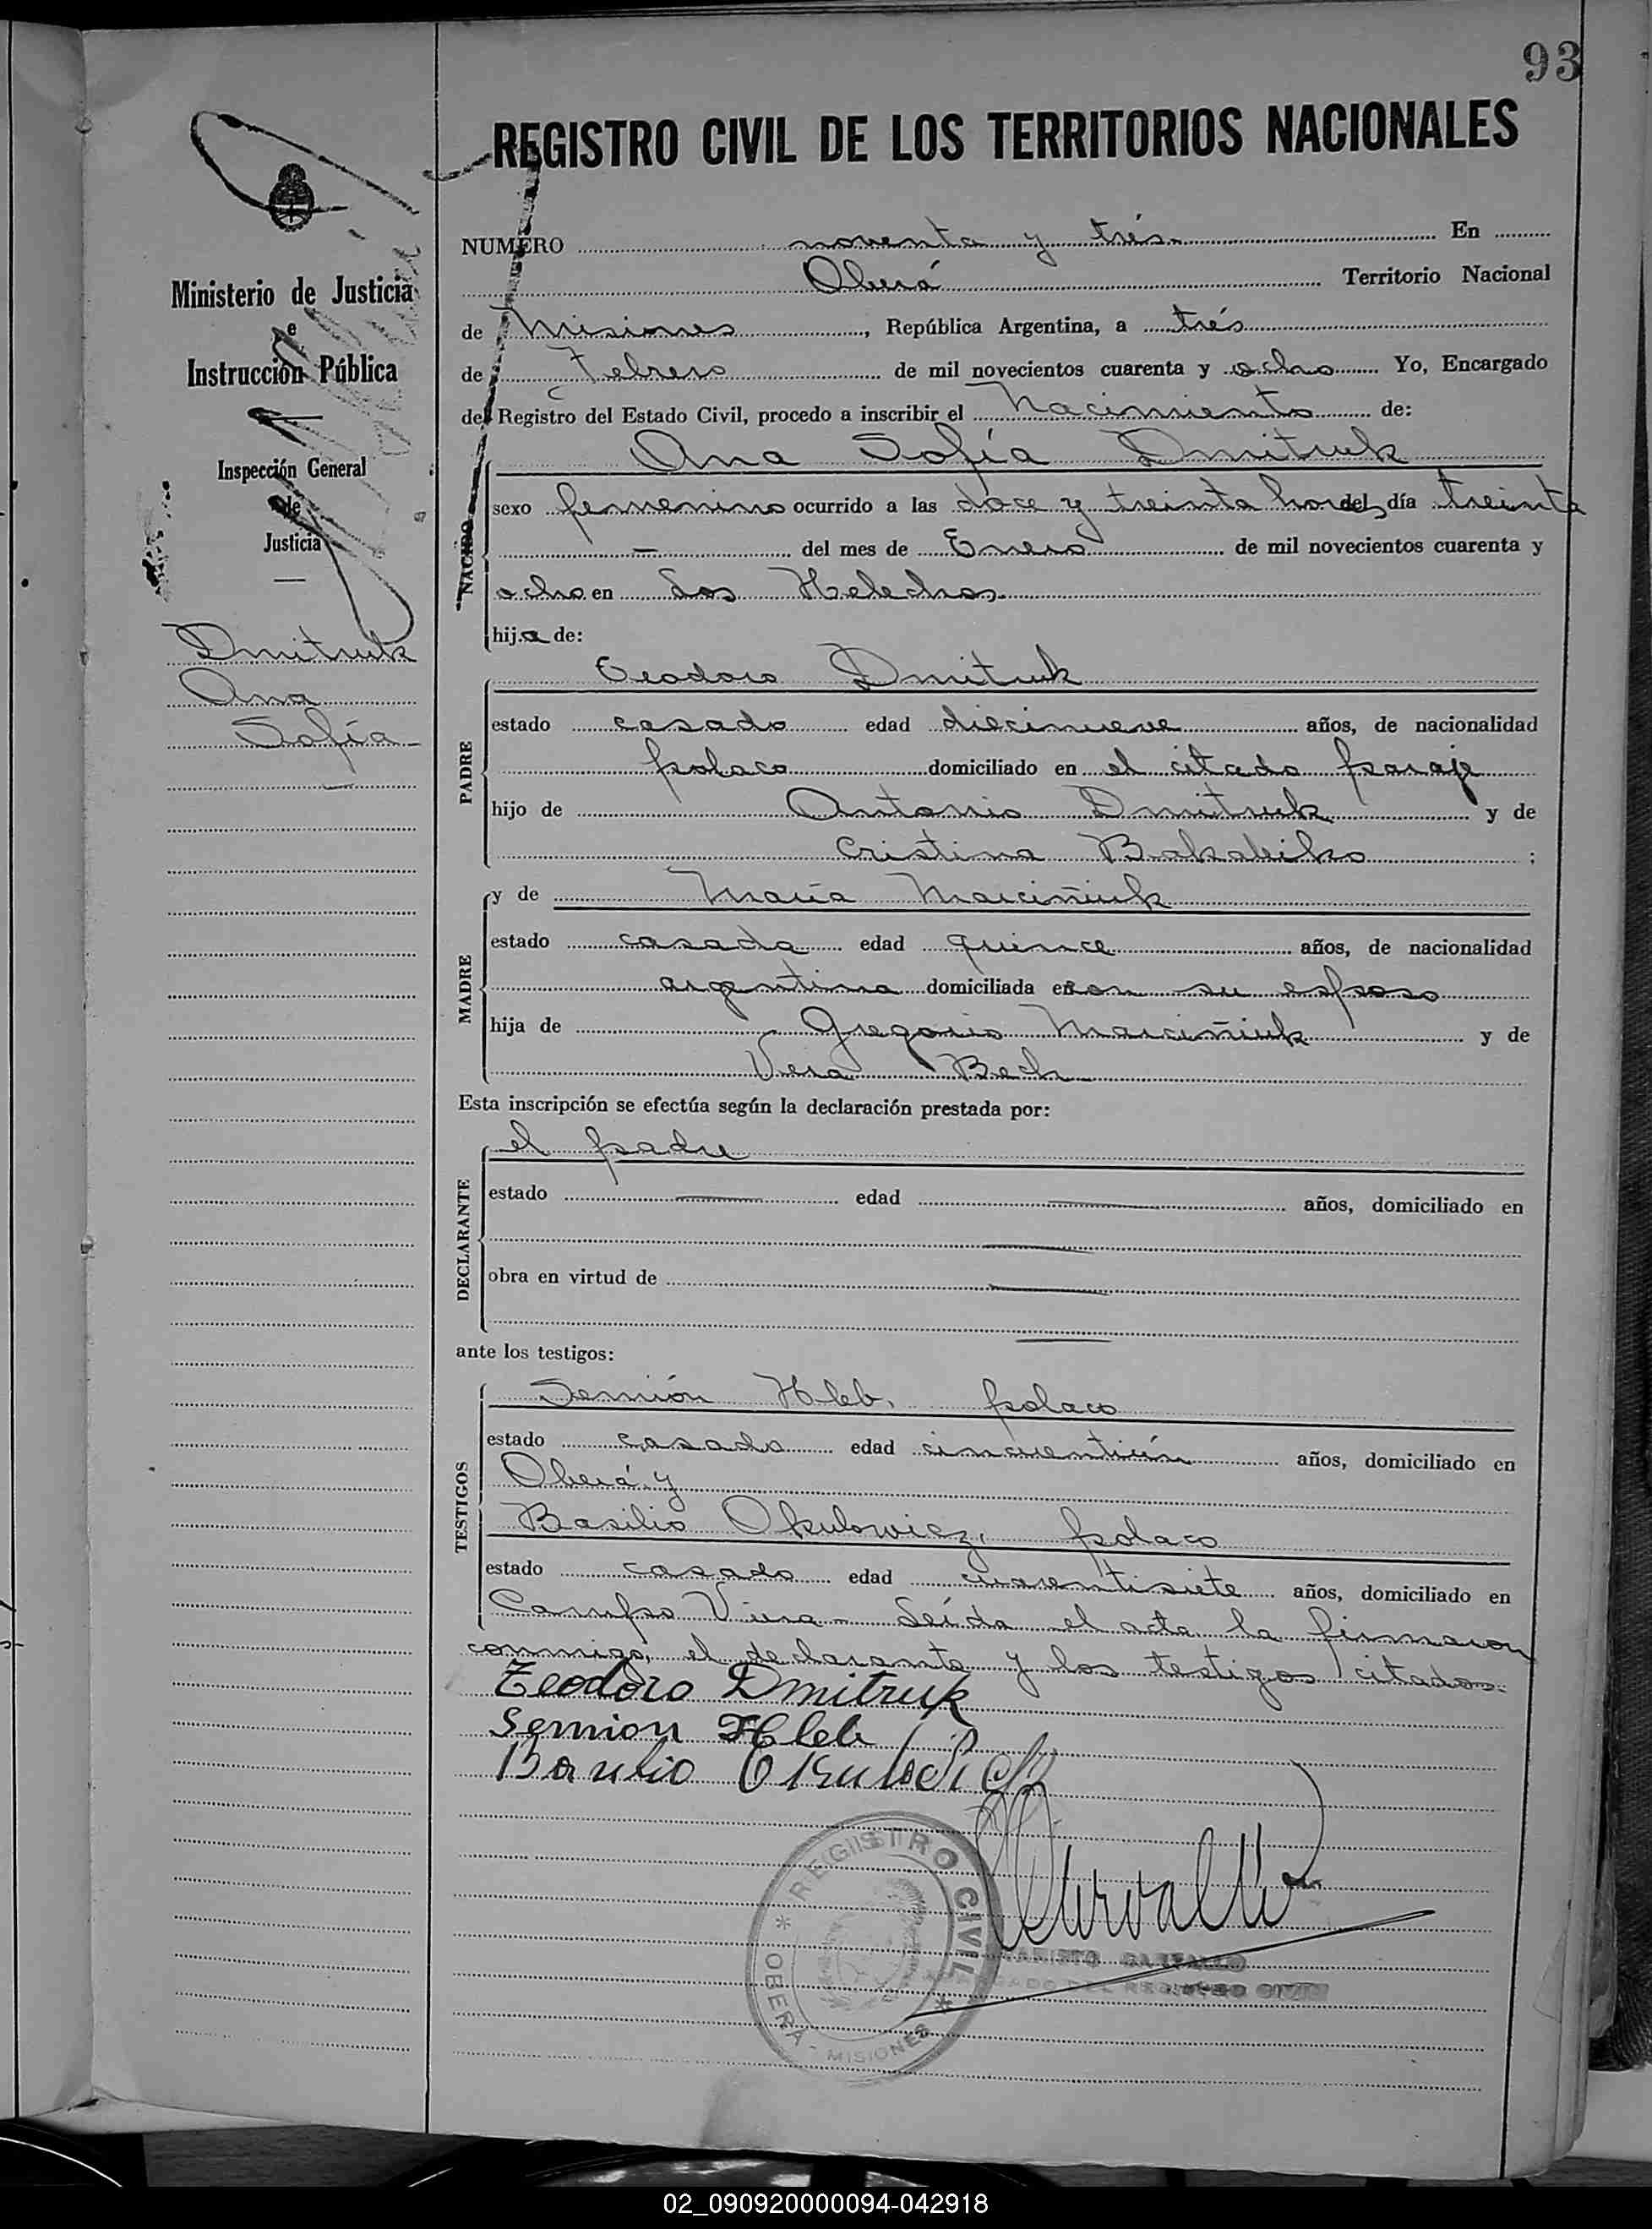 93
REGISTRO CIVIL DE LOS TERRITORIOS NACIONALES
Ministerio de Justicia
e
Instrucción Pública
Inspección General
de
Justicia
Dmitruk
Ana
Sofía
NUMERO noventa y trés En
Oberá Territorio Nacional
de Misiones, República Argentina, a trés
de Febrero de mil novecientos cuarenta y ocho Yo, Encargado
del Registro del Estado Civil, procedo a inscribir el Nacimiento de:
Ana Sofía Dmitruk
NACIDO
sexo femenino ocurrido a las doce y treinta horas del día treinta
— del mes de Enero de mil novecientos cuarenta y
ocho en Los Helechos
hija de:
Teodoro Dmitruk
PADRE
estado casado edad diecinueve años, de nacionalidad
polaco domiciliado en el citado paraje
hijo de Antonio Dmitruk y de
Cristina ;
MADRE
y de María Marciñiuk
estado casada edad quince años, de nacionalidad
argentina domiciliada en con su esposo
hija de Gregorio Marciñiuk y de
Vera Bech
Esta inscripción se efectúa según la declaración prestada por:
el padre
DECLARANTE
estado — edad — años, domiciliado en
—
obra en virtud de —
—
ante los testigos:
Semión Hleb, polaco
TESTIGOS
estado casado edad cincuentiún años, domiciliado en
Oberá y
Basilio Okulowicz, polaco
estado casado edad cuarentisiete años, domiciliado en
Campo Viera - Leída el acta la firmaron
conmigo, el declarante y los testigos citados.
Teodoro Dmitruk
Semion Hleb
REGISTRO CIVIL
OBERA - MISIONES
02_090920000094-042918